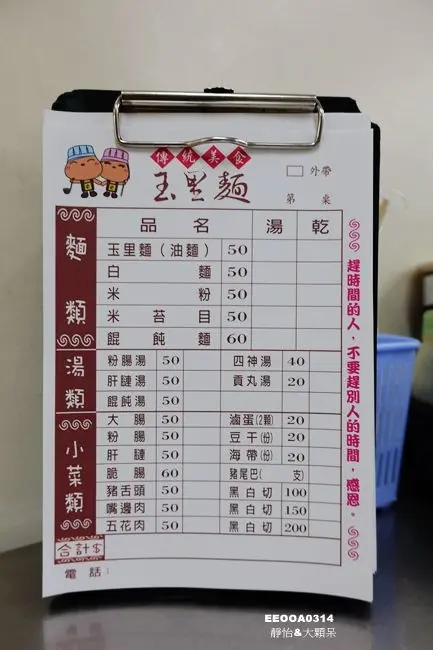 傳統美食
玉里麵
□ 外帶
第 桌
品名 湯 乾
麵類
玉里麵（油麵） 50
白麵 50
米粉 50
米苔目 50
餛飩麵 60
湯類
粉腸湯 50 四神湯 40
肝腱湯 50 貢丸湯 20
餛飩湯 50
小菜類
大腸 50 滷蛋(2顆) 20
粉腸 50 豆干(份) 20
肝腱 50 海帶(份) 20
脆腸 60 豬尾巴( 支)
豬舌頭 50 黑白切 100
嘴邊肉 50 黑白切 150
五花肉 50 黑白切 200
合計$
電話：
趕時間的人，不要趕別人的時間，感恩。
EEOOA0314
靜怡&大顆呆